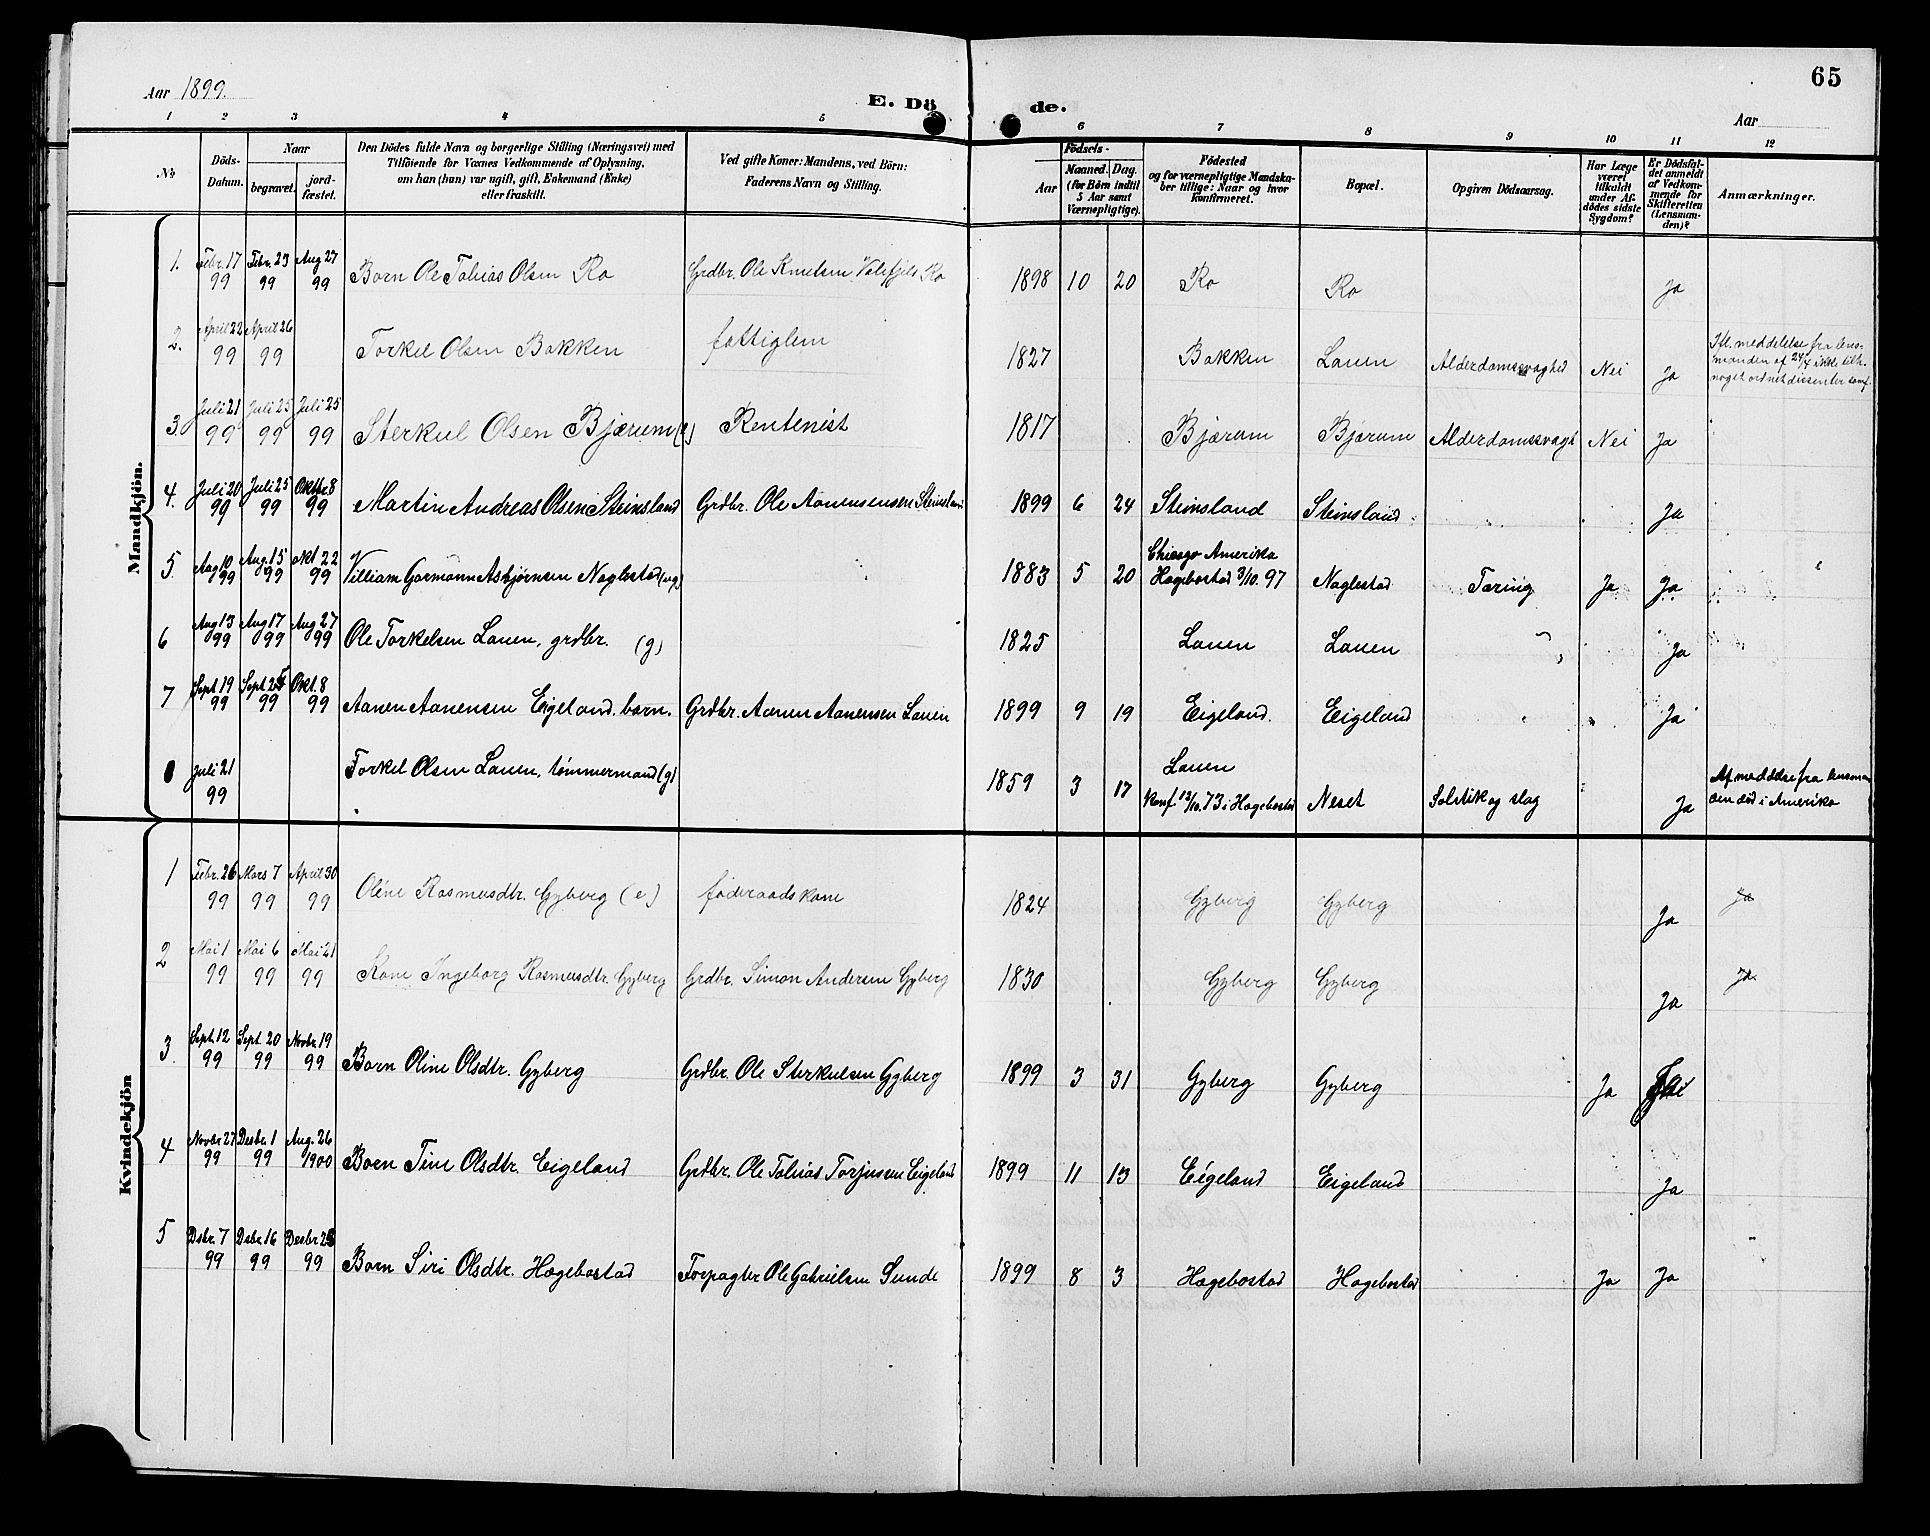 65
Aar 1899.
E. Dö de.
Aar
1 2 3 4 5 6 7 8 9 10 11 12
No
Döds-Datum.
Naar
begravet.
jord-fæstet.
Den Dödes fulde Navn og borgerlige Stilling (Næringsvei) med
Tilföiende for Voxnes Vedkommende af Oplysning,
om han (hun) var ugift, gift, Enkemand (Enke)
eller fraskilt.
Ved gifte Koner: Mandens, ved Börn:
Faderens Navn og Stilling.
Födsels-
Aar
Maaned. Dag.
(for Börn indtil
5 Aar samt
Værnepligtige).
Födested
og for værnepligtige Mandska-
ber tillige: Naar og hvor
konfirmeret.
Bopæl.
Opgiven Dödsaarsag.
Har Læge
været
tilkaldt
under Af-
dödes sidste
Sygdom?
Er Dödsfal-
det anmeldt
af Vedkom-
mende for
Skifteretten
(Lensman-
den)?
Anmærkninger.
Mandkjön.
1. Febr. 17 99 Febr. 23 99 Aug 27 99 Barn Ole Tobias Olsen Ro Grdbr. Ole Knutsen Ro 1898 10 20 Ro Ro Ja
2. April 22 99 April 26 99 Torkel Olsen Bakken fattiglem 1827 Bakken Lauen Alderdomssvaghed Nei Ja
Ifl. meddelelse fra lens-
manden af 24/4 ikke tilh.
noget ordnet dissenter samf.
3. Juli 21 99 Juli 25 99 Juli 25 99 Sterkul Olsen Bjærum (e) Rentenist 1817 Bjærum Bjærum Alderdomssvagh Nei Ja
4. Juli 20 99 Juli 25 99 Oktbr. 8 99 Martin Andreas Olsen Steinsland Grdbr. Ole Aanensen Steinsland 1899 6 24 Steinsland Steinsland Ja
5. Aug 10 99 Aug. 15 99 okt. 22 99 Villiam Garmann Asbjørnsen Naglestad (ug) 1883 5 20 Chicago Amerika
Hægebostad 3/10. 97 Naglestad Tæring Ja Ja
6 Aug 13 99 Aug 17 99 Aug 27 99 Ole Torkelsen Lauen, grdbr. (g) 1825 Lauen Lauen Ja
7 Sept 19 99 Sept 99 Okt. 8 99 Aanen Aanensen Eigeland. barn. Grdbr. Aanen Aanensen Lauen 1899 9 19 Eigeland. Eigeland Ja
Juli 21 99 Torkel Olsen Lauen, tømmermand (g) 1859 3 17 Lauen
Konf. 12/10. 73 i Hægebostad Neset Solstik og slag Ja
Af meddelse fra lensman
den død i Amerika
Kvindekjön
1 Febr. 26 99 Mars 7 99 April 30 99 Oline Rasmusdtr. Gyberg (e.) føderaadskone 1824 Gyberg Gyberg Ja Ja
2 Mai 1 99 Mai 6 99 Mai 21 99 Kone Ingeborg Rasmusdtr. Gyberg Grdbr. Simon Andersen Gyberg 1830 Gyberg Gyberg Ja Ja
3. Sept. 12 99 Sept. 20 99 Novbr. 19 99 Barn Oline Olsdtr. Gyberg Grdbr. Ole Sterkulsen Gyberg 1899 3 31 Gyberg Gyberg Ja
4 Novbr 27 99 Desbr. 1 99 Aug. 26 1900 Barn Tine Olsdtr. Eigeland Grdbr. Ole Tobias Torjusen Eigeland 1899 11 13 Eigeland Eigeland Ja
5 Dsbr. 7 99 Dsbr. 16 99 Desbr 99 Barn Siri Olsdtr. Hægebostad Forpagter Ole Gabrielsen Sunde 1899 8 3 Hægebostad Hægebostad Ja Ja